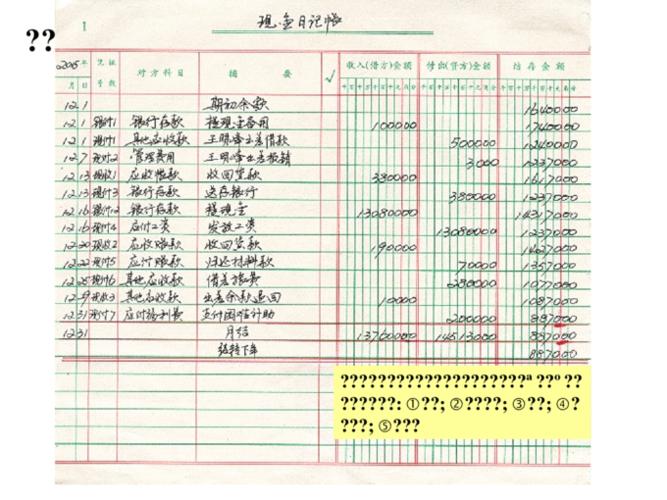 现金日记帐
??
1
2015年 凭证 对方科目 摘要 √ 收入(借方)金额 付出(贷方)金额 结存金额
月 日 号数
12 1 期初余额 1640000
12 1 银付1 银行存款 提现金备用 100000 1740000
12 1 现付1 其他应收款 王明李出差借款 500000 1240000
12 7 现付2 管理费用 王明李出差报销 3000 1237000
12 13 现收1 应收帐款 收回货款 380000 1617000
12 13 现付3 银行存款 送存银行 380000 1237000
12 16 银付12 银行存款 提现金 13080000 14317000
12 16 现付4 应付工资 发放工资 13080000 1237000
12 20 现收2 应收账款 收回货款 190000 1427000
12 22 现付5 应付账款 归还材料款 70000 1357000
12 25 现付6 其他应收款 借差旅费 280000 1077000
12 29 现收3 其他应收款 出差余款退回 10000 1087000
12 31 现付7 应付福利费 支付困难补助 200000 887000
12 31 月结 13760000 14513000 887000
结转下年 887000
????????????????????ª ??º ??
??????: ①??; ②????; ③??; ④?
???; ⑤???